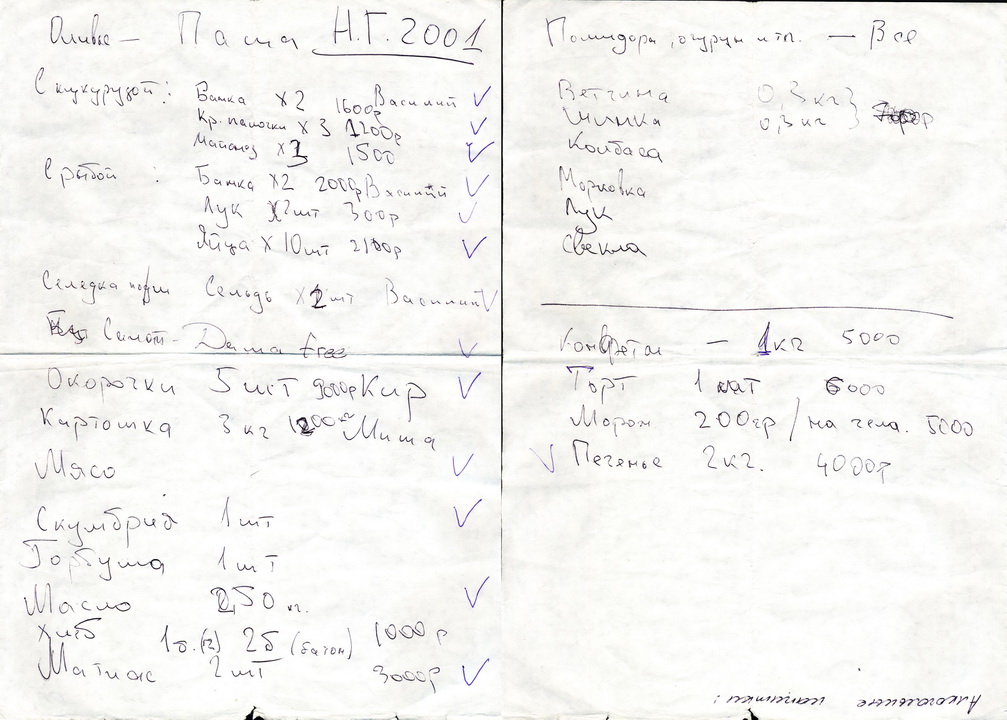 Оливье — Паша Н.Г. 2001
С кукурузой: Банка x2 1600р Василий
Кр. палочки x 3 1200р
Майонез x 3 1500
С рыбой : Банка x2 2000р Василий
Лук x2шт 300р
Яйца x 10шт 2100р
Селедка Сельдь x 2шт Василий
Салат - Dama free
Окорочки 5 шт 9000р Кир
Картошка 3 кг Миша
Мясо
Скумбрия 1шт
Горбуша 1шт
Масло 0,50 кг.
Хлеб 1б. 2б (батон) 1000р
Матиас 2шт 3000р
Помидоры, огурцы и тп. — Все
Ветчина 0,3кг }
Шинка 0,3кг }
Колбаса
Морковка
Лук
Свекла
Конфеты — 1кг 5000
Торт 1 6000
Морож 200гр / на чела. 5000
Печенье 2кг. 4000р
Алкогольные напитки: